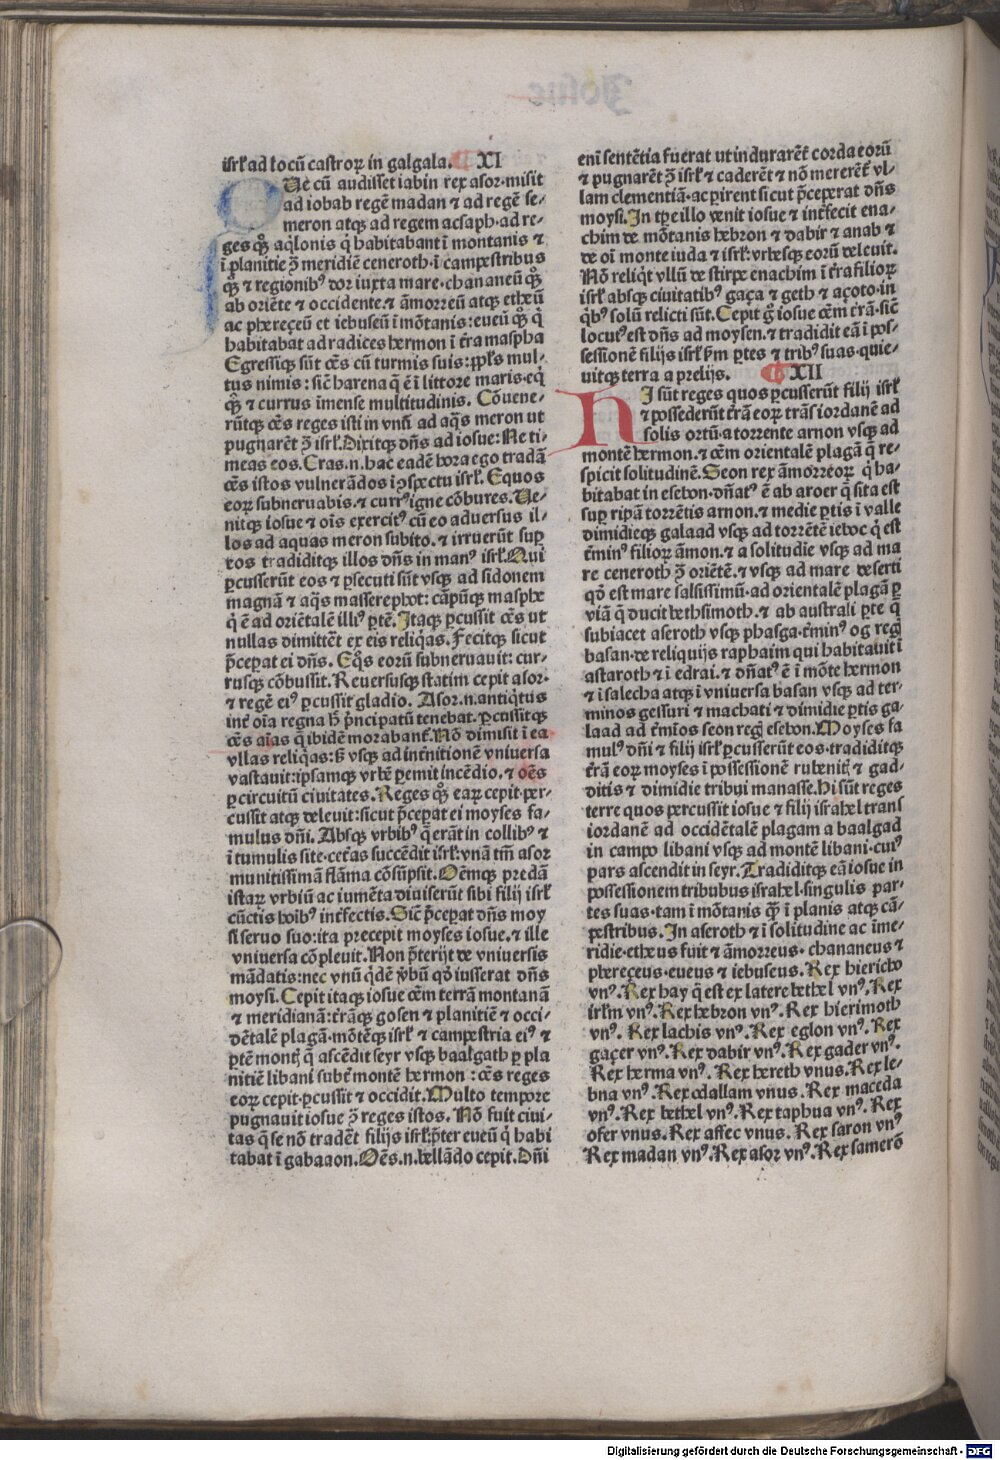 isrl̄ ad locū castroꝝ in galgala. XI
Ue cū audisset iabin rex asor·misit
ad iobab regē madan ⁊ ad regē se⸗
meron atqꝫ ad regem acsaph·ad re⸗
ges qꝫ aq̇lonis q̇ habitabant ī montanis ⁊
ī planitie ꝯ̄ meridiē ceneroth·ī campestribus
qꝫ ⁊ regionibꝰ dor iuxta mare·chananeū qꝫ
ab oriēte ⁊ occidente.⁊ āmorreū atqꝫ etheū
ac phereçeū et iebuseū ī mōtanis:eueū qꝫ q̇
habitabat ad radices hermon ī t̄ra maspha
Egressiqꝫ sūt oēs cū turmis suis:ppl̄s mul⸗
tus nimis: sic̄ harena q̄ ē ī littore maris·eq̇
qꝫ ⁊ currus īmense multitudinis. Cōuene⸗
rūtqꝫ oēs reges isti in vnū ad aq̄s meron ut
pugnarēt ꝯ̄ isrl̄.Dixitqꝫ dn̄s ad iosue: Ne ti⸗
meas eos. Cras.n.hac eadē hora ego tradā
oēs istos vulnerādos ī ꝯspectu isrl̄. Equos
eoꝝ subneruabis.⁊ currꝰ igne cōbures. Ue⸗
nitqꝫ iosue ⁊ oīs exercitꝰ cū eo aduersus il⸗
los ad aquas meron subito.⁊ irruerūt suꝑ
eos tradiditqꝫ illos dn̄s in manꝰ isrl̄.Qui
ꝑcusserūt eos ⁊ ꝑsecuti sūt vsqꝫ ad sidonem
magnā ⁊ aq̄s masserephot: cāpūqꝫ masphe
q̇ ē ad oriētalē illiꝰ ꝑtē. Itaqꝫ ꝑcussit oēs ut
nullas dimittēt ex eis reliq̇as. Fecitqꝫ sicut
p̄ceꝑat ei dn̄s. Eqͦs eorū subneruauit: cur⸗
rusqꝫ cōbussit. Reuersusqꝫ statim cepit asor·
⁊ regē eiꝰ ꝑcussit gladio. Asor.n.antiq̇tus
int̄ oīa regna h̄ p̄ncipatū tenebat.ꝑcussitqꝫ
oēs aīas q̄ ibidē morabant̄.Nō dimisit ī ea
vllas reliq̇as:ß vsqꝫ ad int̄nitionē vniuersa
vastauit:ipsamqꝫ vrbē ꝑemit incēdio.⁊ oēs
ꝑ circuitū ciuitates. Reges qꝫ eaꝝ cepit·per⸗
cussit atqꝫ deleuit:sicut p̄ceꝑat ei moyses fa⸗
mulus dn̄i. Absqꝫ vrbibꝰ q̄ erāt in collibꝰ ⁊
ī tumulis site·cet̄as succēdit isrl̄:vnā tm̄ asor
munitissimā flāma cōsūpsit. Oēmqꝫ predā
istaꝝ vrbiū ac iumēta diuiserūt sibi filij isrl̄
cūctis hoībꝰ int̄fectis. Sic̄ p̄ceꝑat dn̄s moy
si seruo suo:ita precepit moyses iosue.⁊ ille
vniuersa cōpleuit. Non p̄terijt de vniuersis
mādatis:nec vnū q̇dē v̄bū qͦd iusserat dn̄s
moysi. Cepit itaqꝫ iosue oēm terrā montanā
⁊ meridianā:t̄rāqꝫ gosen ⁊ planitiē ⁊ occi⸗
dētalē plagā·mōtēqꝫ isrl̄ ⁊ campestria eiꝰ ⁊
ꝑtē montꝭ q̄ ascēdit seyr vsqꝫ baalgath ꝑ pla
nitiē libani subt̄ montē hermon : oēs reges
eoꝝ cepit·ꝑcussit ⁊ occidit. Multo tempore
pugnauit iosue ꝯ̄ reges istos. Nō fuit ciui⸗
tas q̄ se nō tradēt filijs isrl̄:p̄ter eueū q̇ habi
tabat ī gabaaon.Oēs.n.bellādo cepit. Dn̄i
eni sentētia fuerat ut indurarēt̄ corda eorū
⁊ pugnarēt ꝯ̄ isrl̄ ⁊ caderēt ⁊ nō mererēt̄ vl⸗
lam clementiā·ac ꝑirent sicut p̄ceꝑat dn̄s
moysi. In tꝑe illo venit iosue ⁊ int̄fecit ena⸗
chim de mōtanis hebron ⁊ dabir ⁊ anab ⁊
de oī monte iuda ⁊ isrl̄: vrbesqꝫ eorū deleuit.
Nō reliq̇t vllū de stirpe enachim ī t̄ra filioꝝ
isrl̄ absqꝫ ciuitatibꝰ gaça ⁊ geth ⁊ açoto·in
q̇bꝰ solū relicti sūt. Cepit gͦ iosue oēm t̄rā.sic̄
locutꝰ est dn̄s ad moysen.⁊ tradidit eā ī pos⸗
sessionē filijs isrl̄ ẜm ꝑtes ⁊ tribꝰ suas·quie⸗
uitqꝫ terra a prelijs. XII
HI sūt reges quos ꝑcusserūt filij isrl̄
⁊ possederūt t̄rā eoꝝ trās iordanē ad
solis ortū·a torrente arnon vsqꝫ ad
montē hermon.⁊ oēm orientalē plagā q̄ re⸗
spicit solitudinē. Seon rex āmorreoꝝ q̇ ha⸗
bitabat in esebon·dn̄atꝰ ē ab aroer q̄ sita est
suꝑ ripā torrētis arnon.⁊ medie ꝑtis ī valle
dimidieqꝫ galaad vsqꝫ ad torrētē ieboc q̇ est
t̄minꝰ filioꝝ āmon.⁊ a solitudīe vsqꝫ ad ma
re ceneroth ꝯ̄ oriētē.⁊ vsqꝫ ad mare deserti
qͦd est mare salsissimū·ad orientalē plagā ꝑ
viā q̄ ducit bethsimoth.⁊ ab australi ꝑte q̄
subiacet aseroth vsqꝫ phasga·t̄minꝰ og regꝭ
basan·de reliquijs raphaim qui habitauit ī
astaroth ⁊ ī edrai.⁊ dn̄atꝰ ē ī mōte hermon
⁊ ī salecha atqꝫ ī vniuersa basan vsqꝫ ad ter⸗
minos gessuri ⁊ machati ⁊ dimidie ꝑtis ga⸗
laad ad t̄mīos seon regꝭ esebon. Moyses fa
mulꝰ dn̄i ⁊ filij isrl̄ ꝑcusserūt eos·tradiditqꝫ
t̄rā eoꝝ moyses ī possessionē rubenitꝭ ⁊ gad⸗
ditis ⁊ dimidie tribui manasse. Hi sūt reges
terre quos percussit iosue ⁊ filij israhel trans
iordanē ad occidētalē plagam a baalgad
in campo libani vsqꝫ ad montē libani·cuiꝰ
pars ascendit in seyr. Tradiditqꝫ eā iosue in
possessionem tribubus israhel·singulis par⸗
tes suas·tam ī mōtanis q̄ꝫ ī planis atqꝫ cā⸗
pestribus. In aseroth ⁊ ī solitudine ac īme⸗
ridie·etheus fuit ⁊ āmorreus· chananeus ⁊
phereçeus·eueus ⁊ iebuseus. Rex hiericho
vnꝰ. Rex hay q̄ est ex latere bethel vnꝰ. Rex
irlm̄ vnꝰ. Rex hebron vnꝰ. Rex hierimoth
vnꝰ. Rex lachis vnꝰ. Rex eglon vnꝰ. Rex
gaçer vnꝰ. Rex dabir vnꝰ. Rex gader vnꝰ.
Rex herma vnꝰ. Rex hereth vnus. Rex le⸗
bna vnꝰ. Rex odallam vnus. Rex maceda
vnꝰ. Rex bethel vnꝰ. Rex taphua vnꝰ. Rex
ofer vnus. Rex affec vnus. Rex saron vnꝰ
Rex madan vnꝰ. Rex asor vnꝰ. Rex samerō
Digitalisierung gefördert durch die Deutsche Forschungsgemeinschaft - DFG